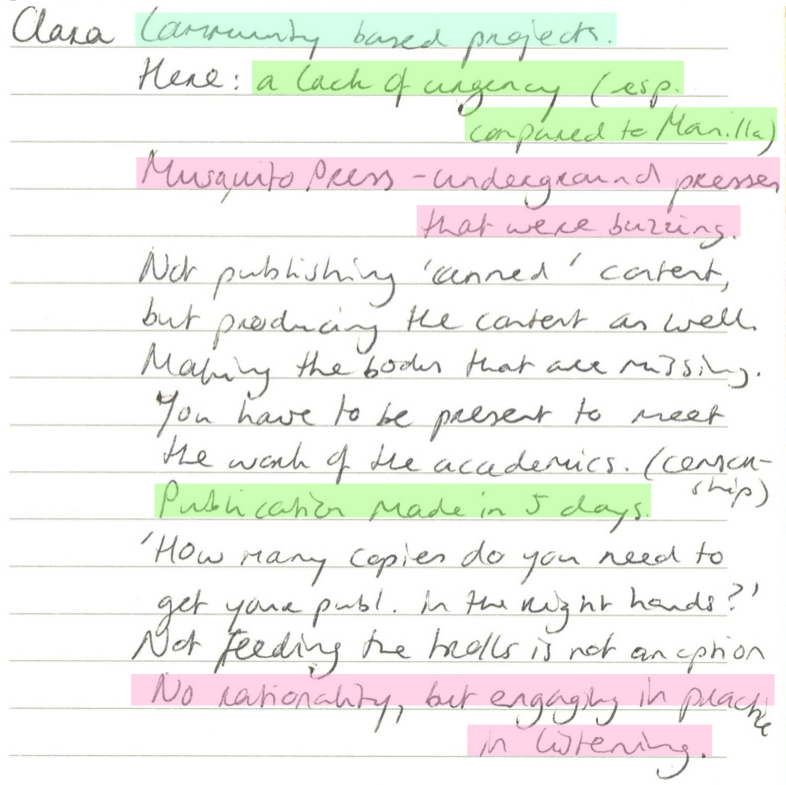 Clara Community based projects.
Here: a lack of urgency (esp.
compared to Manilla)
Musquito Press - underground presses
that were buzzing.
Not publishing 'canned' content,
but producing the content as well.
Making the books that are missing.
You have to be present to meet
the work of the academics. (censor-
ship)
Publication made in 5 days.
'How many copies do you need to
get your publ. in the right hands?'
Not feeding the trolls is not an option
No rationality, but engaging in practice
in listening.